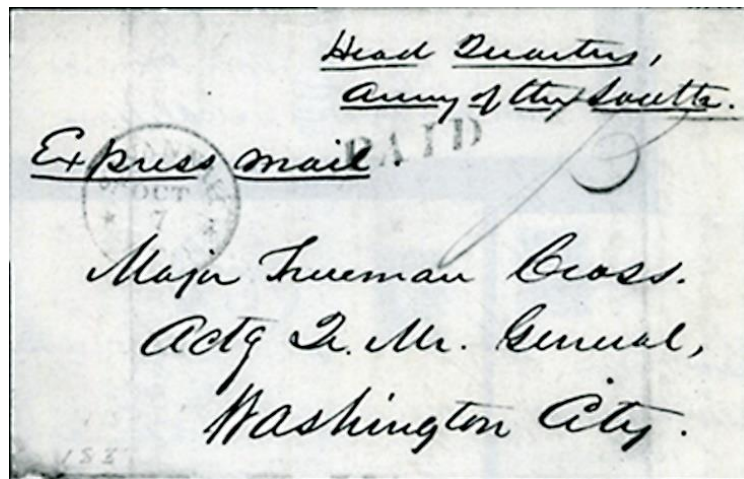 Head Quarters,
Army of the South.
PAID
Express mail.
OCT
7
Major Trueman Cross.
Actg Qr. Mr. General,
Washington City.